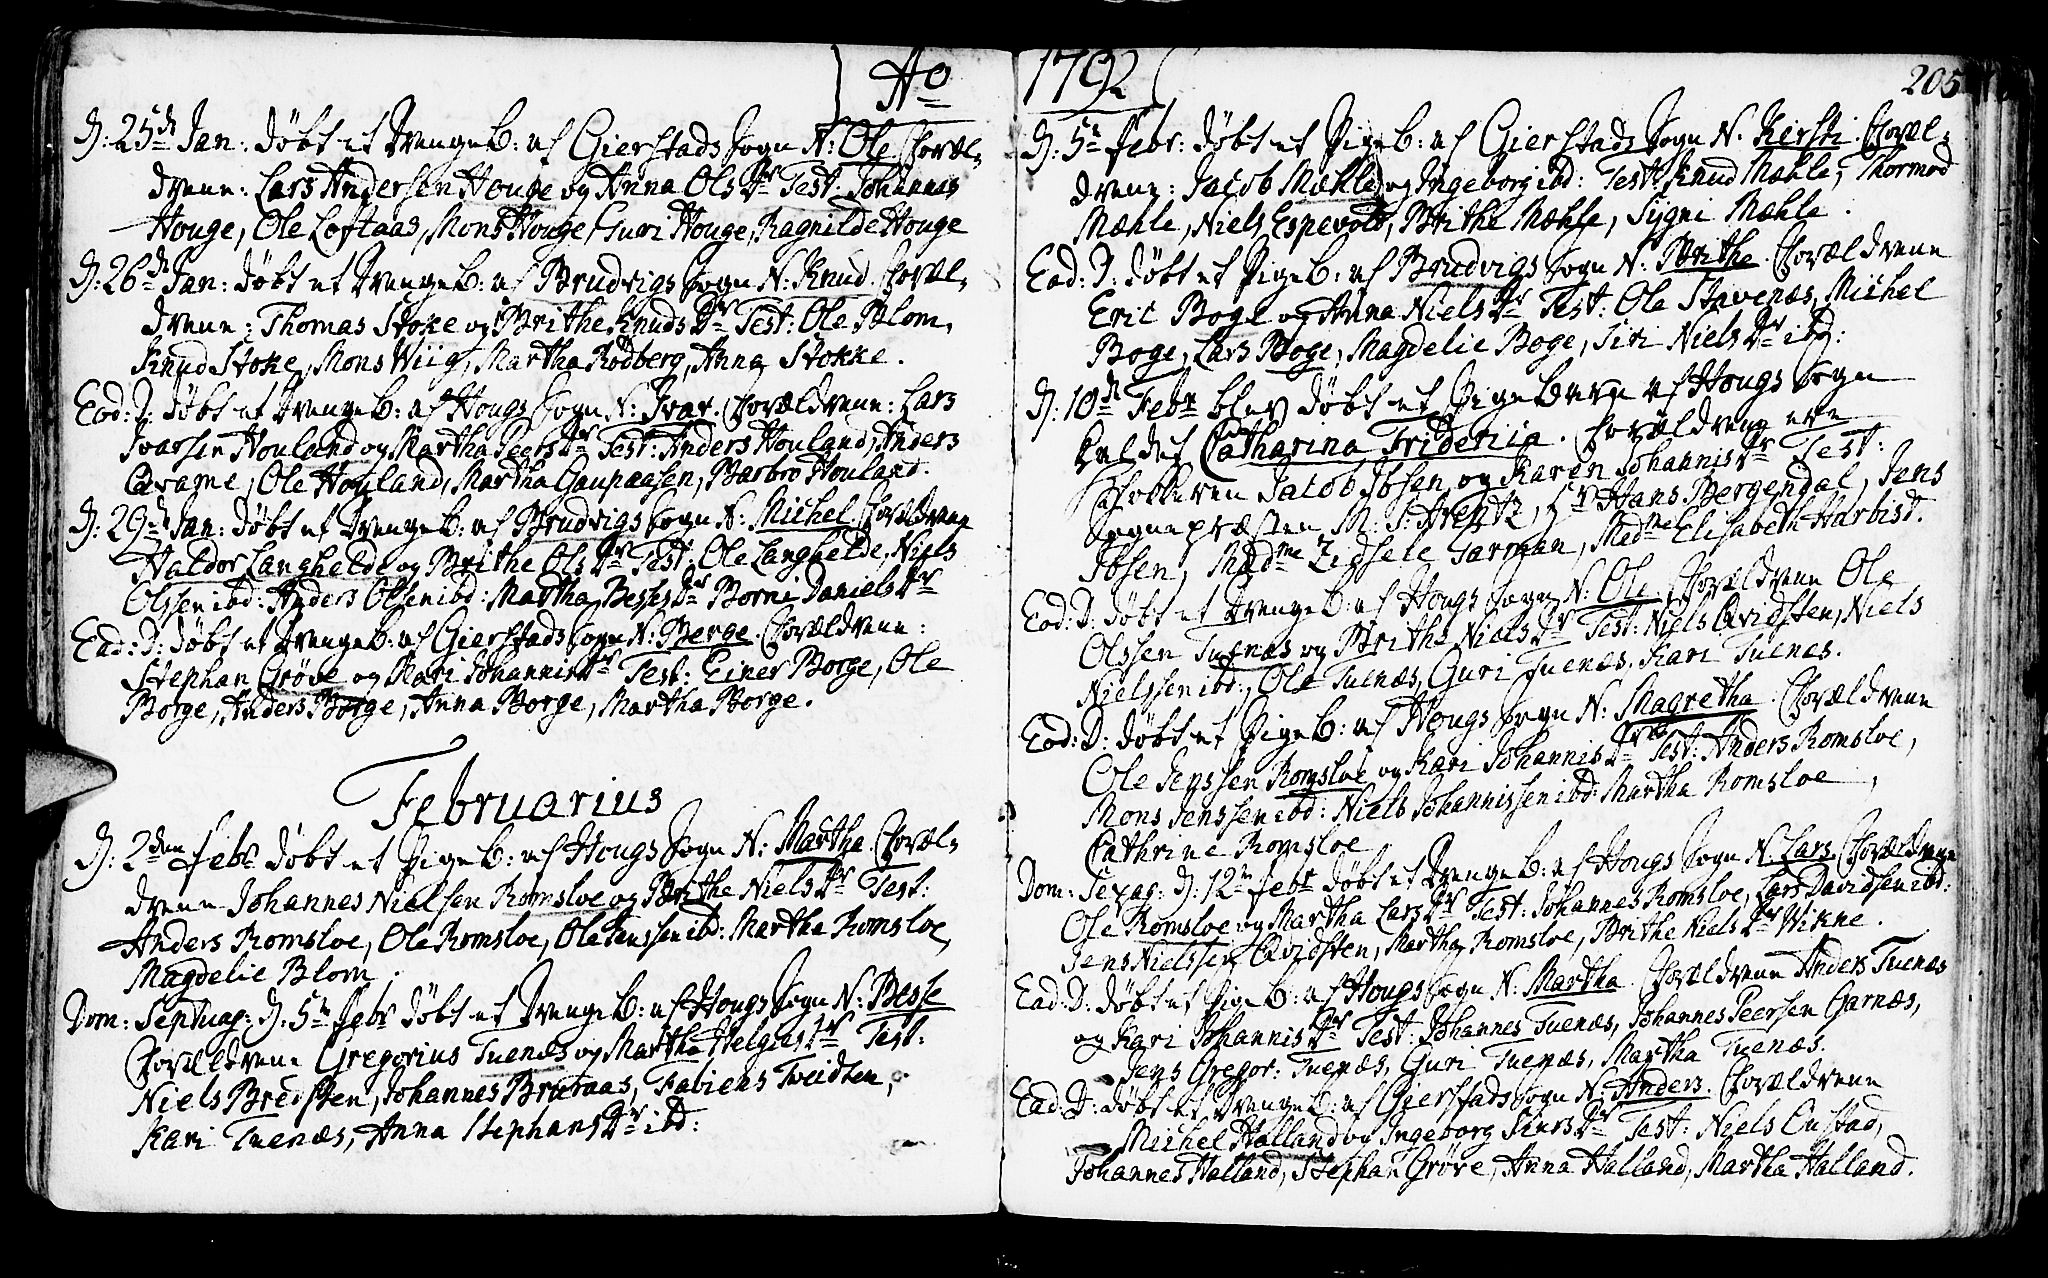 Aº 1792
205
D: 25de Jan: døbt et DrengeB: af Gierstads Sogn N: Ole Foræl-
drene: Lars Andersen Houge og Anna OlsDr Test: Johannes
Houge, Ole Loftaas, Mons Houge, Guri Houge, Ragnilde Houge
D: 26de Jan: døbt et DrengeB: af Brudvigs Sogn N: Knud. Foræl-
drene: Thomas Stoke og Brithe KnudsDr Test: Ole Blom,
Knud Stoke, Mons Wiig, Martha Rødberg, Anna Stokke.
Eod: D: døbt et DrengeB: af Hougs Sogn N: Ivar. Forældrene: Lars
Ivarsen Houland og Martha PeersDr Test: Anders Houland, Anders
Ole Houland, Martha Gaupaasen, Barbro Houland.
D: 29de Jan: døbt et DrengeB: af Brudvigs Sogn N: Michel Forældrene
Haldor Langhelde og Brithe OlsDr Test: Ole Langhelde, Niels
Olssen ibd: Anders Olssen ibd: Martha BessesDr Borni DanielsDr
Ead: D: døbt et DrengeB: af Gierstads Sogn N: Berge. Forældrene:
Stephan Grøve og Mari JohannisDr Test: Einer Borge, Ole
Borge, Anders Borge, Anna Borge, Martha Borge.
Februarius
D: 2den Febr døbt et PigeB: af Hougs Sogn N: Martha Foræl-
drene Johannes Nielsen Romsloe og Brithe NielsDr Test:
Anders Romsloe, Ole Romsloe, Ole Jenssen ibd: Martha Romsloe,
Magdelie Blom.
Dom: Septuag: D: 5te Febr døbt et DrengeB: af Hougs Sogn N: Besse
Forældrene Gregorius Tuenæs og Martha HelgiesDr Test:
Niels Bredsten, Johannes Brutaas, Fabiens Tveidten,
Kari Tuenæs, Anna StephansDr ibd:
D: 5te Febr: døbt et PigeB: af Gierstads Sogn N: Kirsti. Foræl-
drene: Jacob Mæhle og Ingeborg ibd: Test: Knud Mæhle, Thormod
Mæhle, Niels Espevold, Brithe Mæhle, Sygni Mæhle.
Ead: D: døbt et PigeB: af Brudvigs Sogn N: Brithe. Forældrene
Eric Boge og Anna NielsDr Test: Ole Stavenæs, Michel
Boge, Lars Boge, Magdelie Boge, Siri NielsDr ibd:
D: 10de Febr blev døbt et PigeBarn af Hougs Sogn
kaldet Catharina Fridericia. Forældrene ere
Jacob Ibsen og Karen JohannisDr Test:
Sognepræsten M: S: Arentz, Hr Hans Bergendal, Jens
Ibsen, Madme Zidsele Garman, Madme Elisabeth Harbist.
Eod: D: døbt et DrengeB: af Hougs Sogn N: Ole. Forældrene Ole
Olssen Tuenæs og Brithe NielsDr Test: Niels Qvidsten, Niels
Nielssen ibd:, Ole Tuenæs, Guri Tuenæs, Kari Tuenæs.
Eod: D: døbt et PigeB: af Hougs Sogn N: Magretha. Forældrene
Ole Jenssen Romsloe og Kari JohannisDr Test: Anders Romsloe,
Mons Jenssen ibd: Niels Johannissen ibd: Martha Romsloe,
Cathrine Romsloe
Dom: Sexag: D: 12te Febr døbt et DrengeB: af Hougs Sogn N. Lars Forældrene
Ole Romsloe og Martha LarsDr Test: Johannes Romsloe, Lars Davidsen ibd:
Jens Nielssen Qvidsten, Martha Romsloe, Brithe NielsDr Wikne.
Ead: D: døbt et PigeB: af Hougs Sogn N: Martha. Forældrene Anders Tuenæs
og Kari JohannisDr Test: Johannes Tuenæs, Johannes Peersen Garnæs,
Jens Gregor: Tuenæs, Guri Tuenæs, Martha Tuenæs.
Ead: D: døbt et DrengeB: af Gierstads Sogn N: Anders. Forældrene
Michel Halland og Ingeborg Test: Niels Enstad,
Johannes Halland, Stephan Grøve, Anna Halland, Martha Halland.